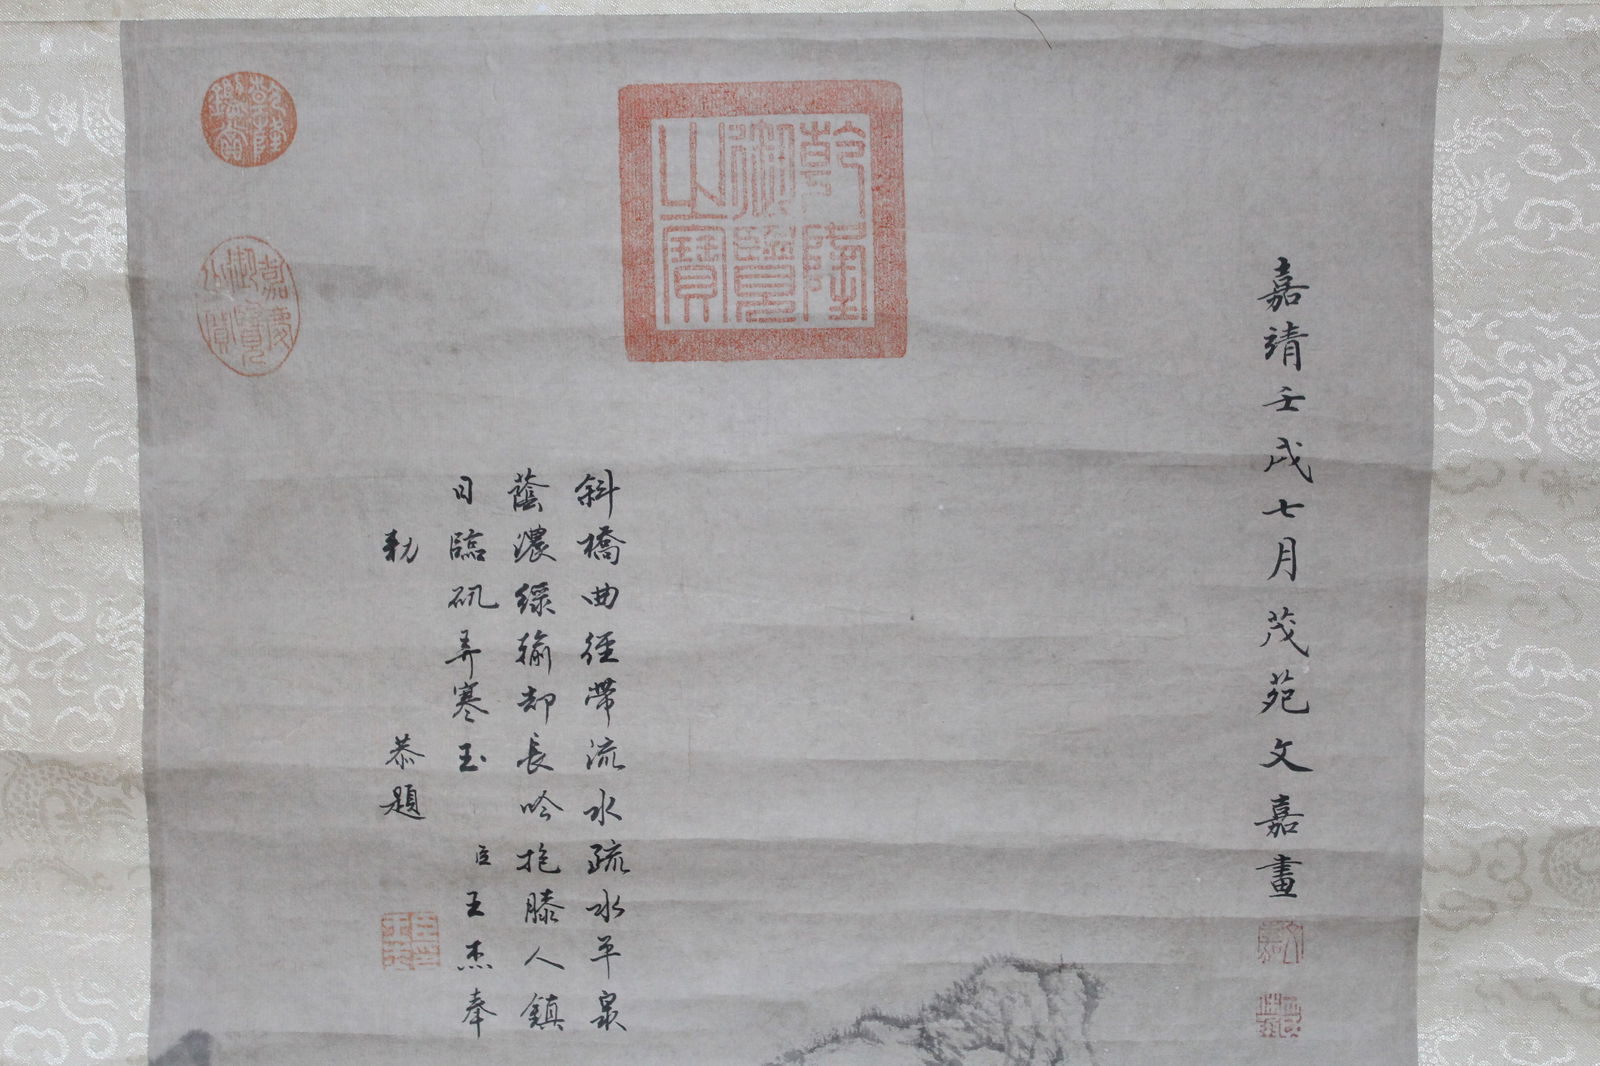 嘉靖壬戌七月茂苑文嘉畫
乾隆御覽之寶
斜橋曲徑帶流水疏水平泉
蔭濃綠輸却長吟抱膝人鎮
日臨矶弄寒玉 臣王杰奉
勅 恭題
乾隆鑑賞
嘉慶御覽之寶